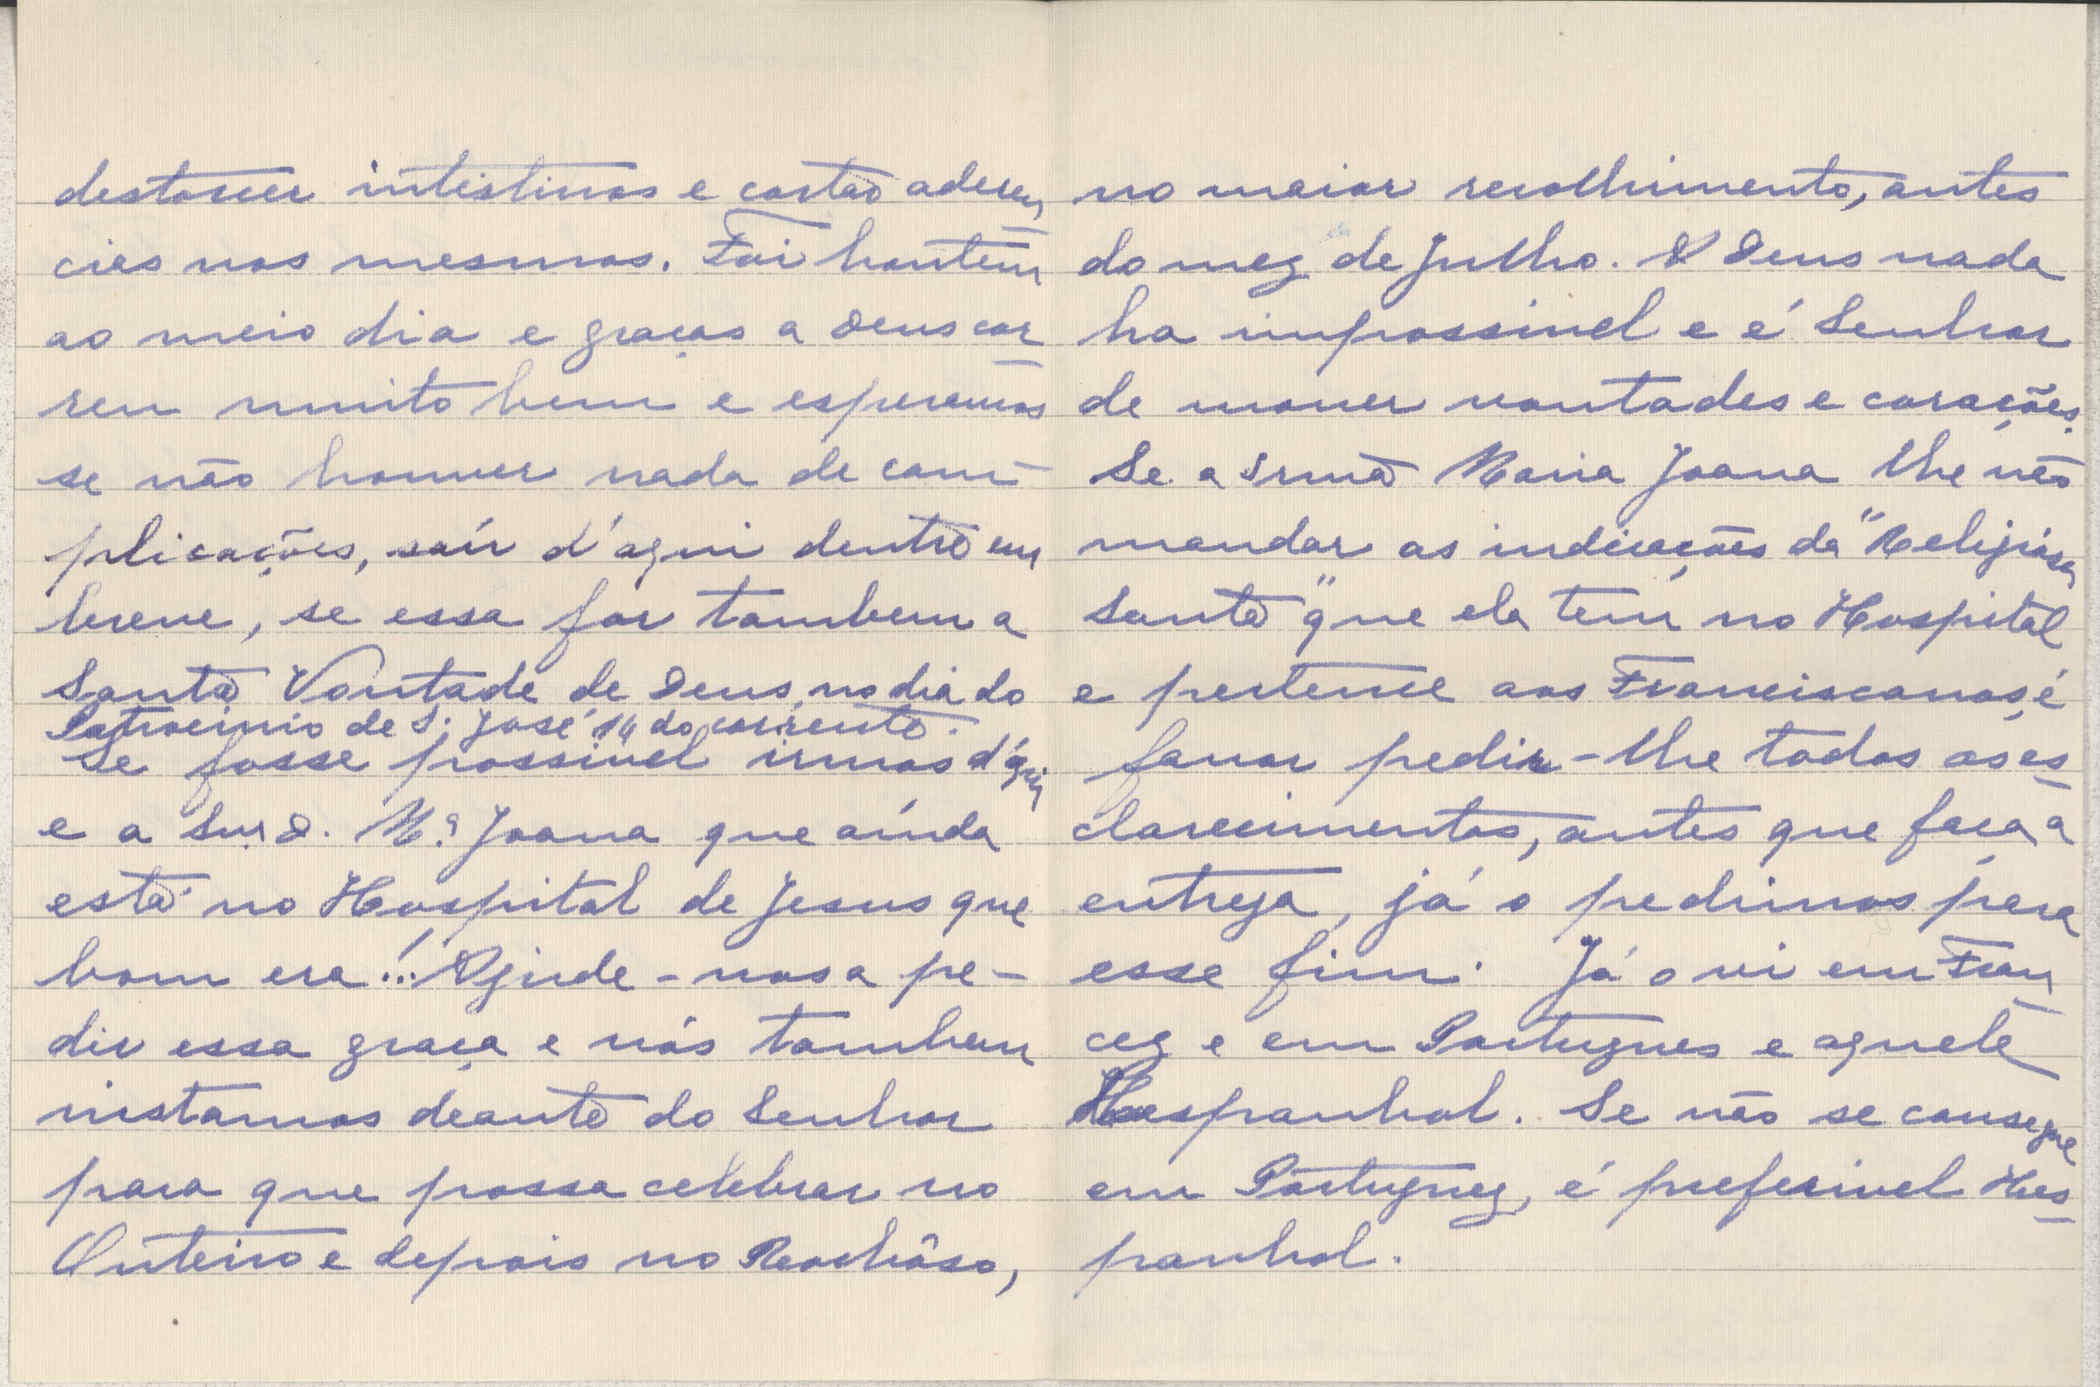 destorcer intestinos e cortar aderen
cias nos mesmos. Foi hontem
ao meio dia e graças a Deus cor
reu muito bem e esperamos
se não houver nada de com-
plicações, saír d'aqui dentro em
breve, se essa for tambem a
Santa Vontade de Deus, no dia do
Patrocinio de S. José 14 do corrente.
Se fosse possivel irmos d'aqui
e a Snr.ª D. M.ª Joana que aínda
está no Hospital de Jesus que
bom era!.. Ajude-nos a pe-
dir essa graça e nós tambem
instamos deante do Senhor
para que possa celebrar no
Outeiro e depois no Rochôso,
no maior recolhimento, antes
do mez de Julho. A Deus nada
ha impossivel e é Senhor
de mover vontades e corações.
Se a Irmã Maria Joana lhe não
mandar as indicações da "Religiósa
Santa" que ela tem no Hospital
e pertence aos Franciscanos, é
favor pedir-lhe todos os es
clarecimentos, antes que faça a
entrega, já o pedimos para
esse fim. Já o vi em Fran
cez e em Portugues e aquele
Hespanhol. Se não se consegue
em Portuguez, é preferivel Hes
panhol.